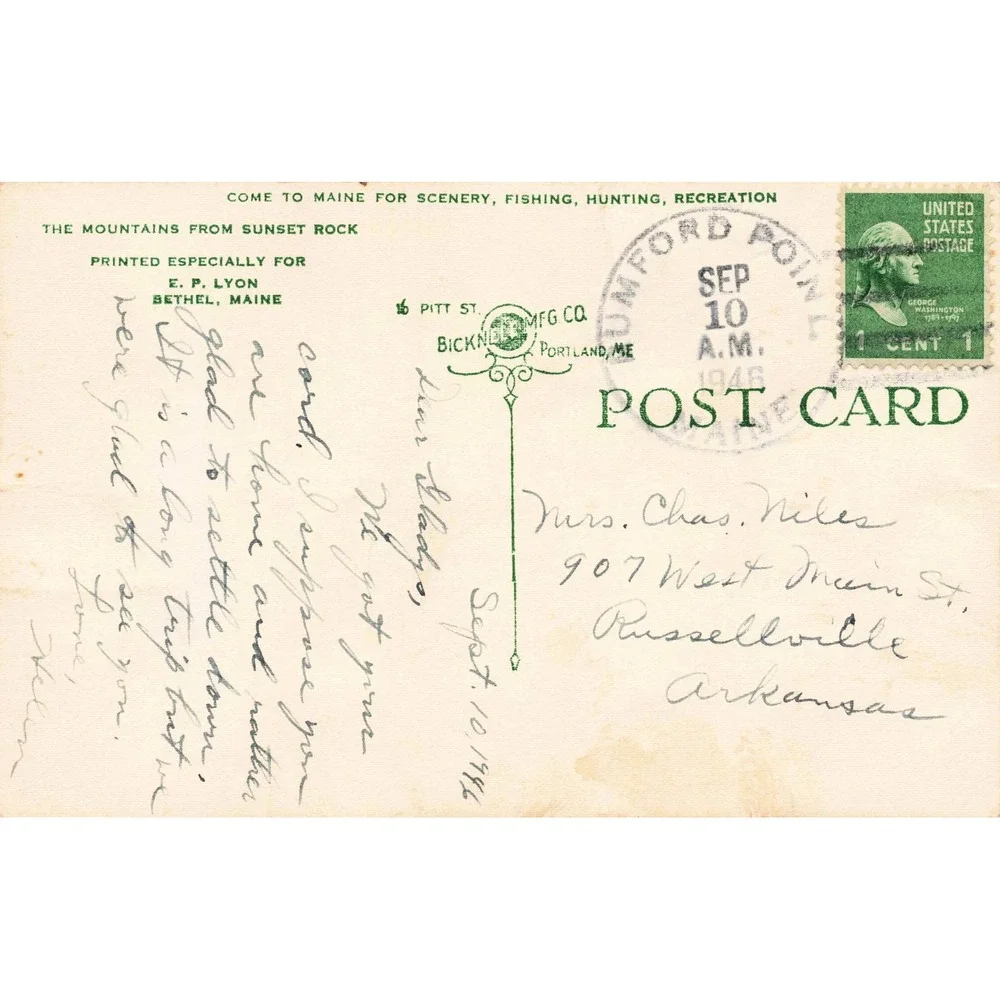 COME TO MAINE FOR SCENERY, FISHING, HUNTING, RECREATION
THE MOUNTAINS FROM SUNSET ROCK
PRINTED ESPECIALLY FOR
E. P. LYON
BETHEL, MAINE
16 PITT ST.
BICKNELL MFG CO.
PORTLAND, ME
RUMFORD POINT
SEP
10
A.M.
1946
MAINE
UNITED
STATES
POSTAGE
GEORGE
WASHINGTON
1789-1797
1 CENT 1
POST CARD
Sept. 10, 1946
Dear Gladys,
We got your
card. I suppose you
are home and rather
glad to settle down.
It is a long trip but we
were glad to see you.
Love,
Helen
Mrs. Chas. Niles
907 West Main St.
Russellville
Arkansas